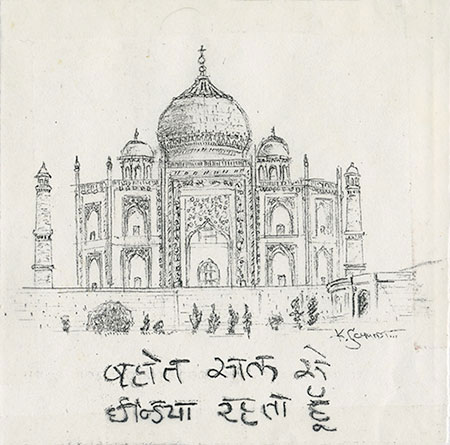 K. SCHMIDT
बहोत साल से
ईन्डिया रहता हूँ